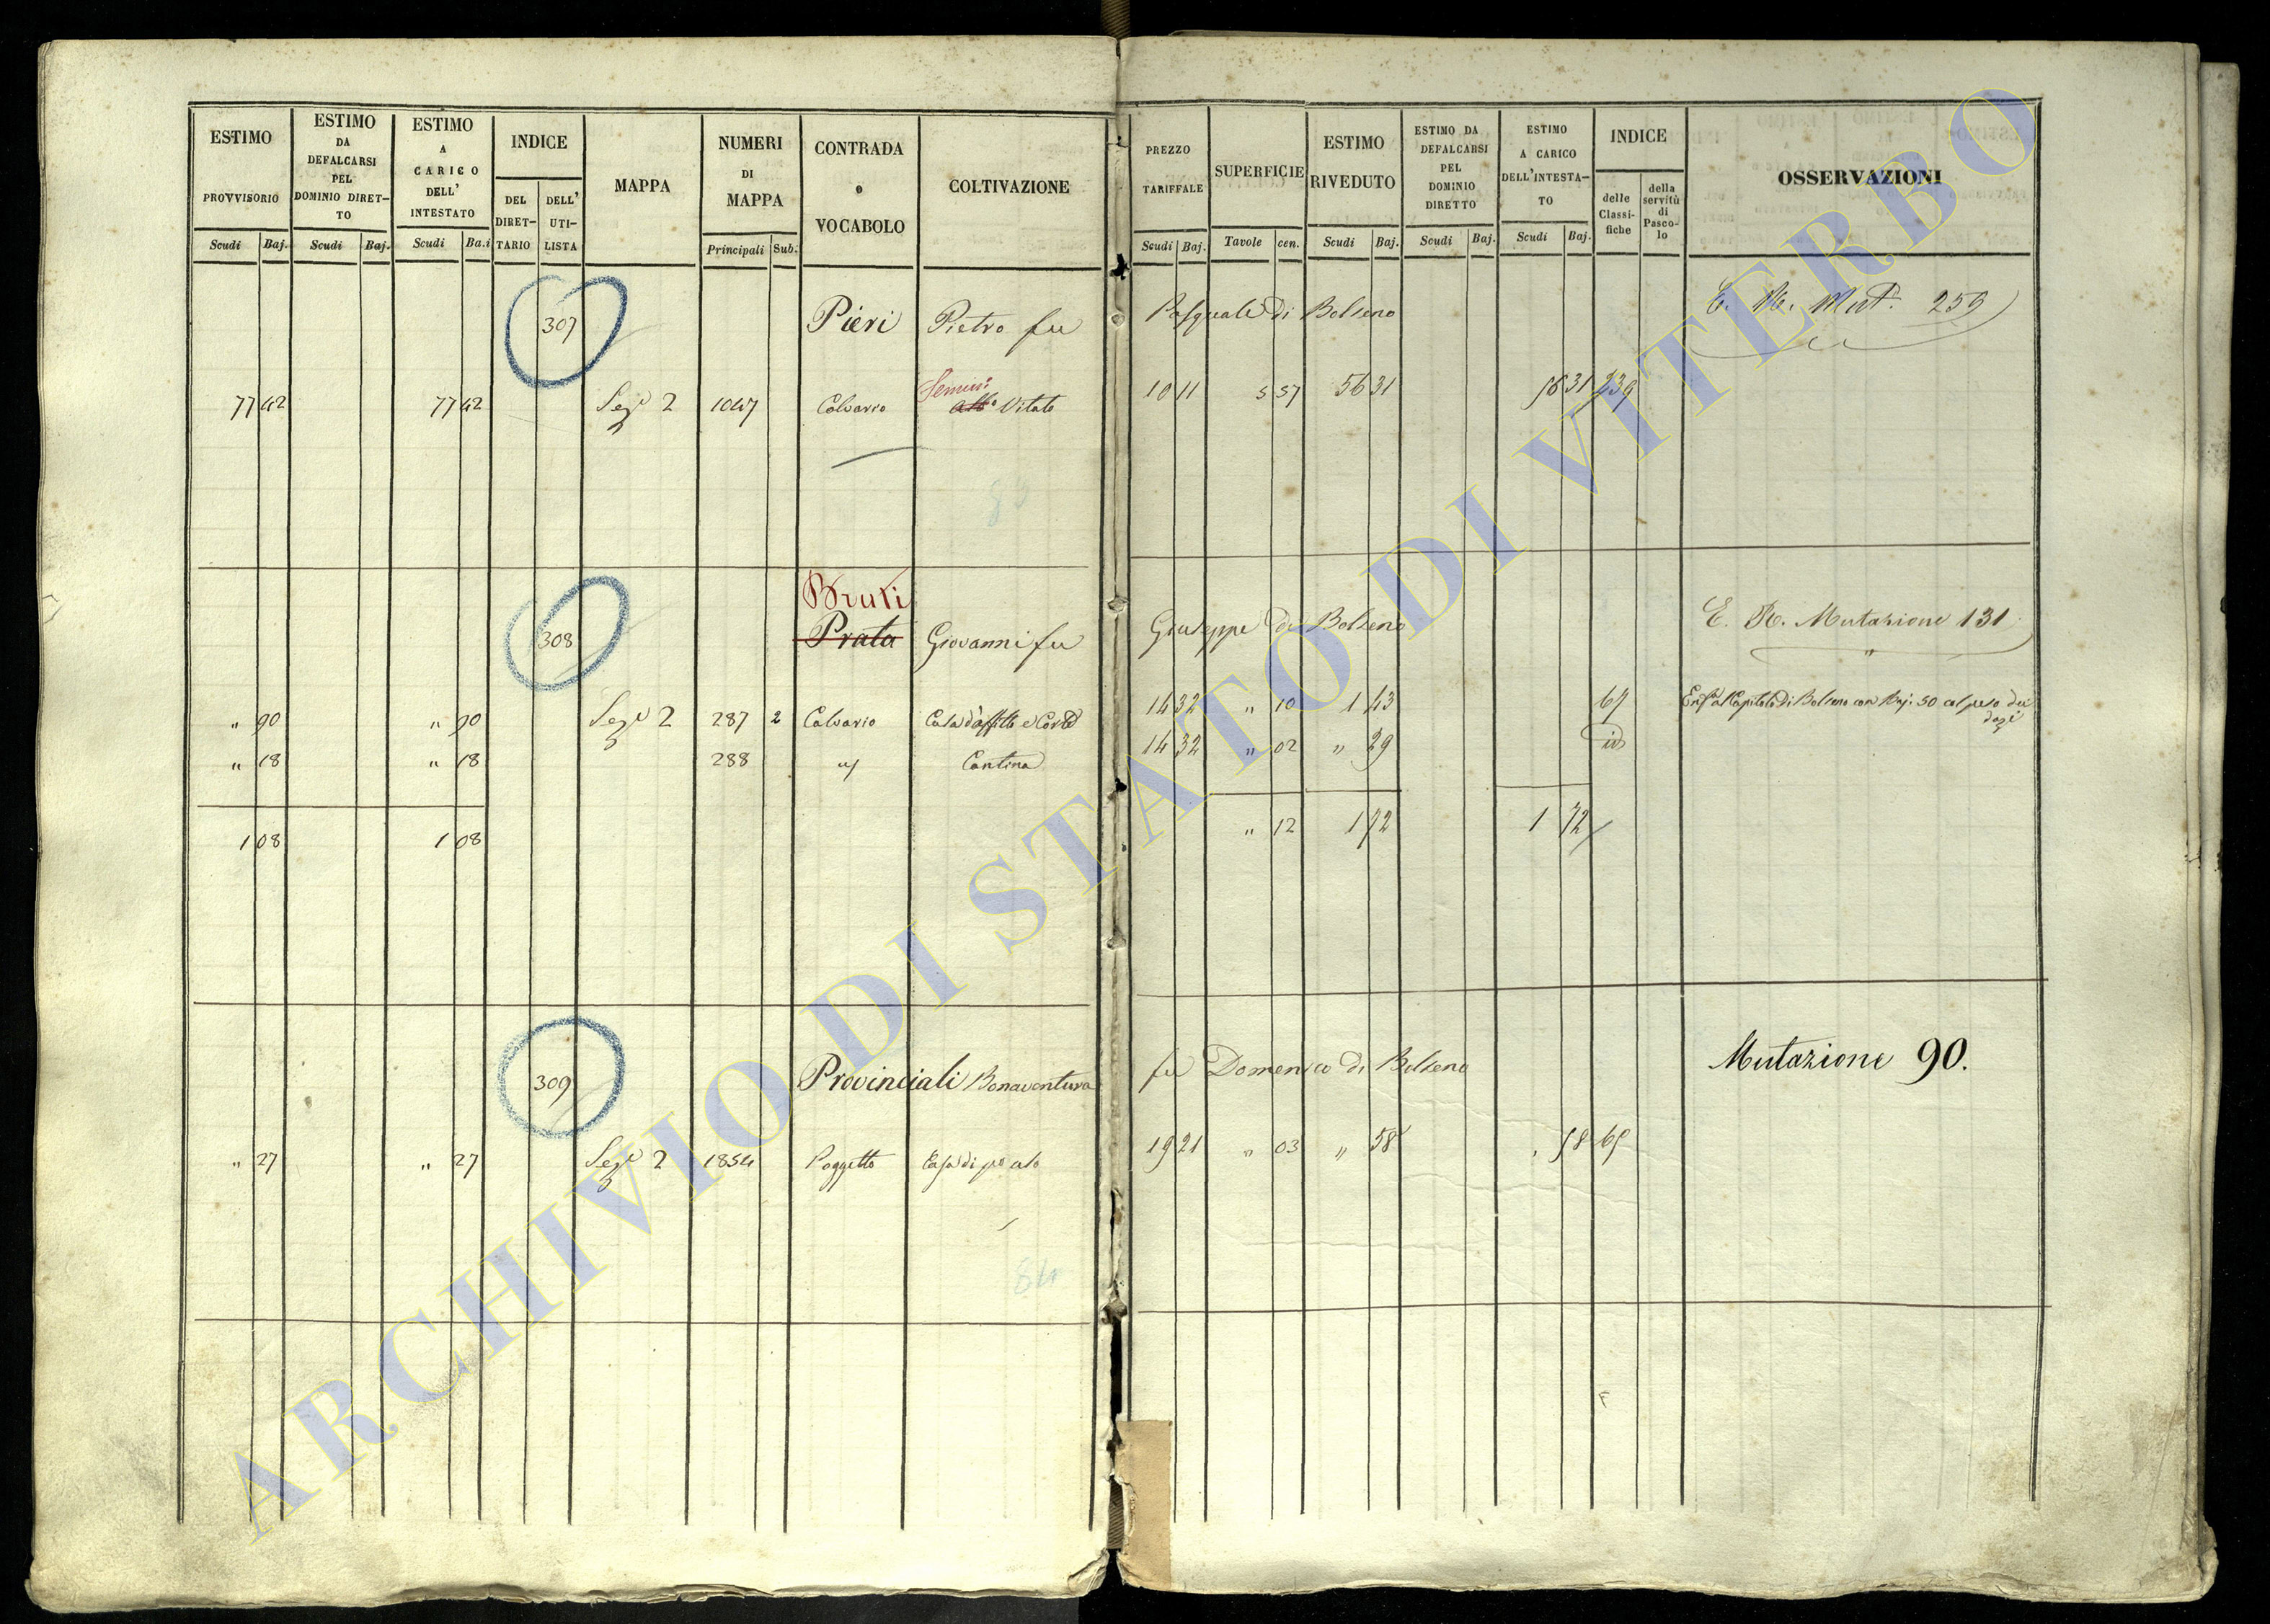 ESTIMO PROVVISORIO Scudi Baj.
ESTIMO DA DEFALCARSI PEL DOMINIO DIRET-TO Scudi Baj.
ESTIMO A CARICO DELL' INTESTATO Scudi Ba.i
INDICE DEL DIRET-TARIO DELL' UTI-LISTA
MAPPA
NUMERI DI MAPPA Principali Sub.
CONTRADA o VOCABOLO
COLTIVAZIONE
PREZZO TARIFFALE Scudi Baj.
SUPERFICIE Tavole cen.
ESTIMO RIVEDUTO Scudi Baj.
ESTIMO DA DEFALCARSI PEL DOMINIO DIRETTO Scudi Baj.
ESTIMO A CARICO DELL'INTESTA-TO Scudi Baj.
INDICE delle Classi-fiche della servitù di Pasco-lo
OSSERVAZIONI
307 Pieri Pietro fu Pasquale di Bolseno E. R. Mut. 259
Semin:
77 42 77 42 Sez.e 2 1047 Calvario Vitato 10 11 5 57 56 31 56 31 239
83
Bruti
308 Prata Giovanni fu Giuseppe di Bolseno E. R. Mutazione 131
" 90 " 90 Sez.e 2 287 2 Calvario Casa d'affitto e Corte 14 32 " 10 1 43 67 al Capitolo di Bolseno con Baj: 50 col peso dei dazi
" 18 " 18 288 " Cantina 14 32 " 02 " 29 id
1 08 1 08 " 12 1 72 1 72
309 Provinciali Bonaventura fu Domenico di Bolseno Mutazione 90.
" 27 " 27 Sez.e 2 1854 Poggetto Casa di p.o uso 19 21 " 03 " 58 " 58 65
84
ARCHIVIO DI STATO DI VITERBO